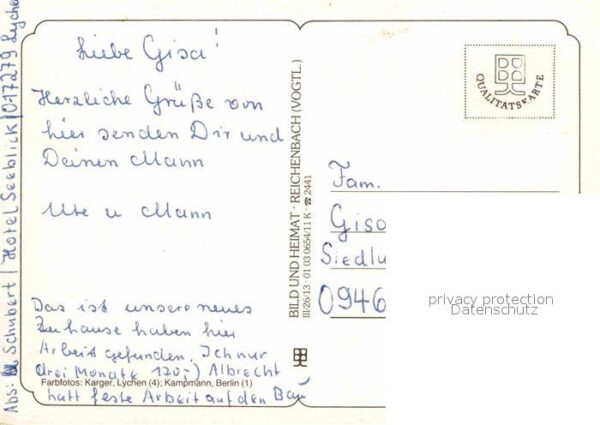 Abs: Schubert / Hotel Seeblick / O-17279 Lyche
Liebe Gisa!
Herzliche Grüße von
hier senden Dir und
Deinen Mann
Ute u Mann
Das ist unsere neues
Zuhause haben hier
Arbeit gefunden. Ich nur
drei Monate 120,-) Albrecht
Farbfotos: Karger, Lychen (4); Kampmann, Berlin (1)
hatt feste Arbeit auf den Bau
BILD UND HEIMAT · REICHENBACH (VOGTL.)
III/26/13 · 01 03 0654/11 K · ☎ 2441
QUALITÄTSKARTE
Fam.
Gisa
Siedlu
0946
privacy protection
Datenschutz